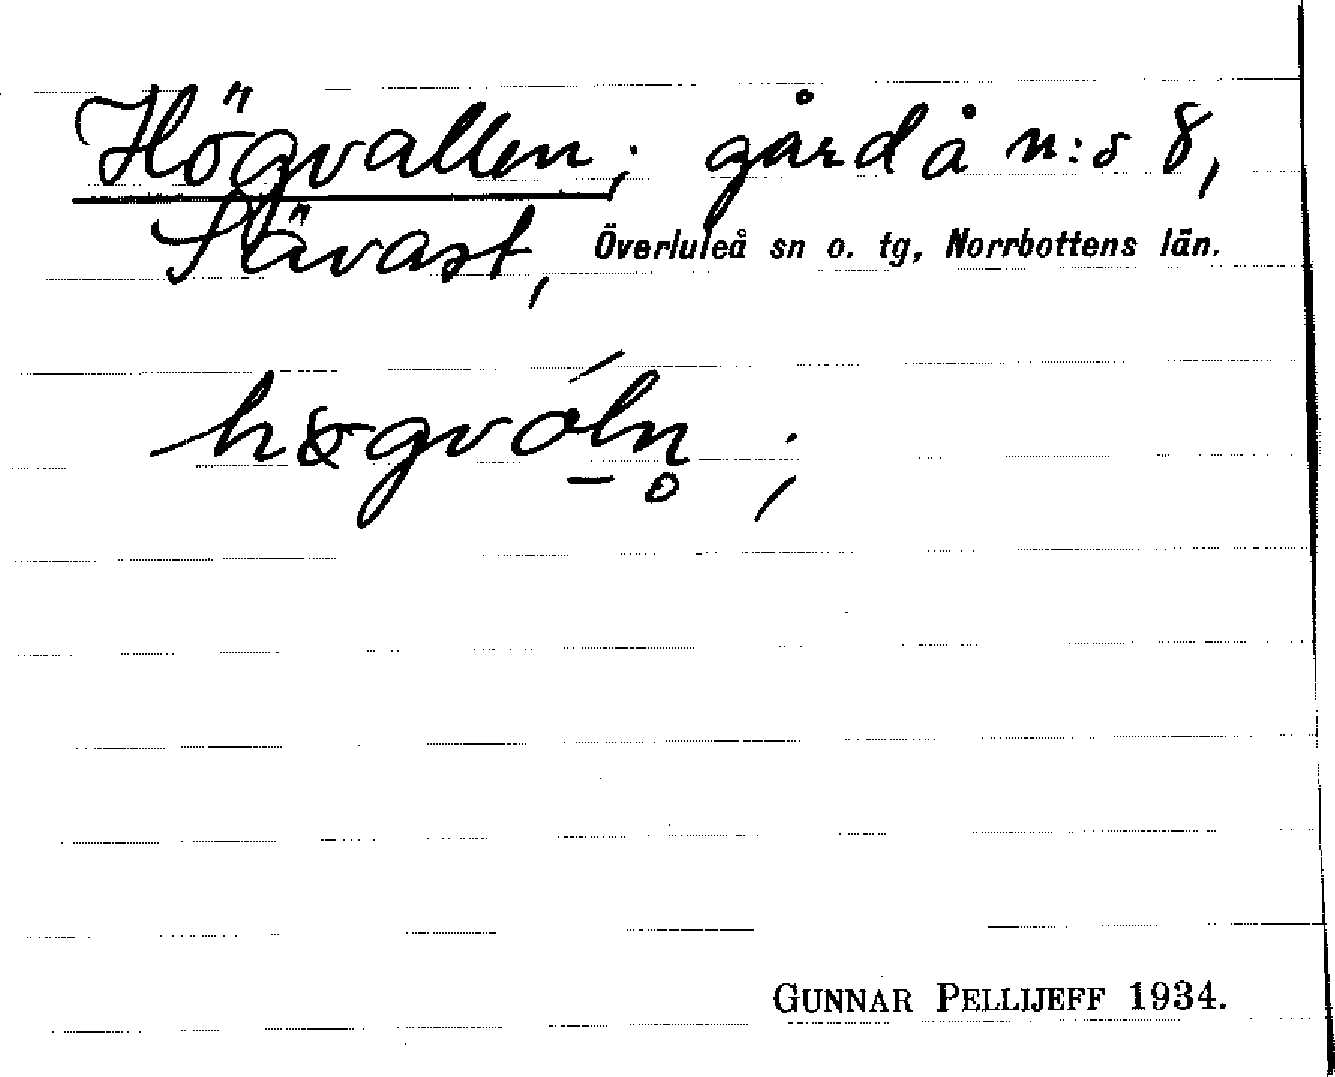 Högvallen; gård å n:s 8,
Sävast, Överluleå sn o. tg, Norrbottens län.
høgvóln̥;
GUNNAR PELLIJEFF 1934.